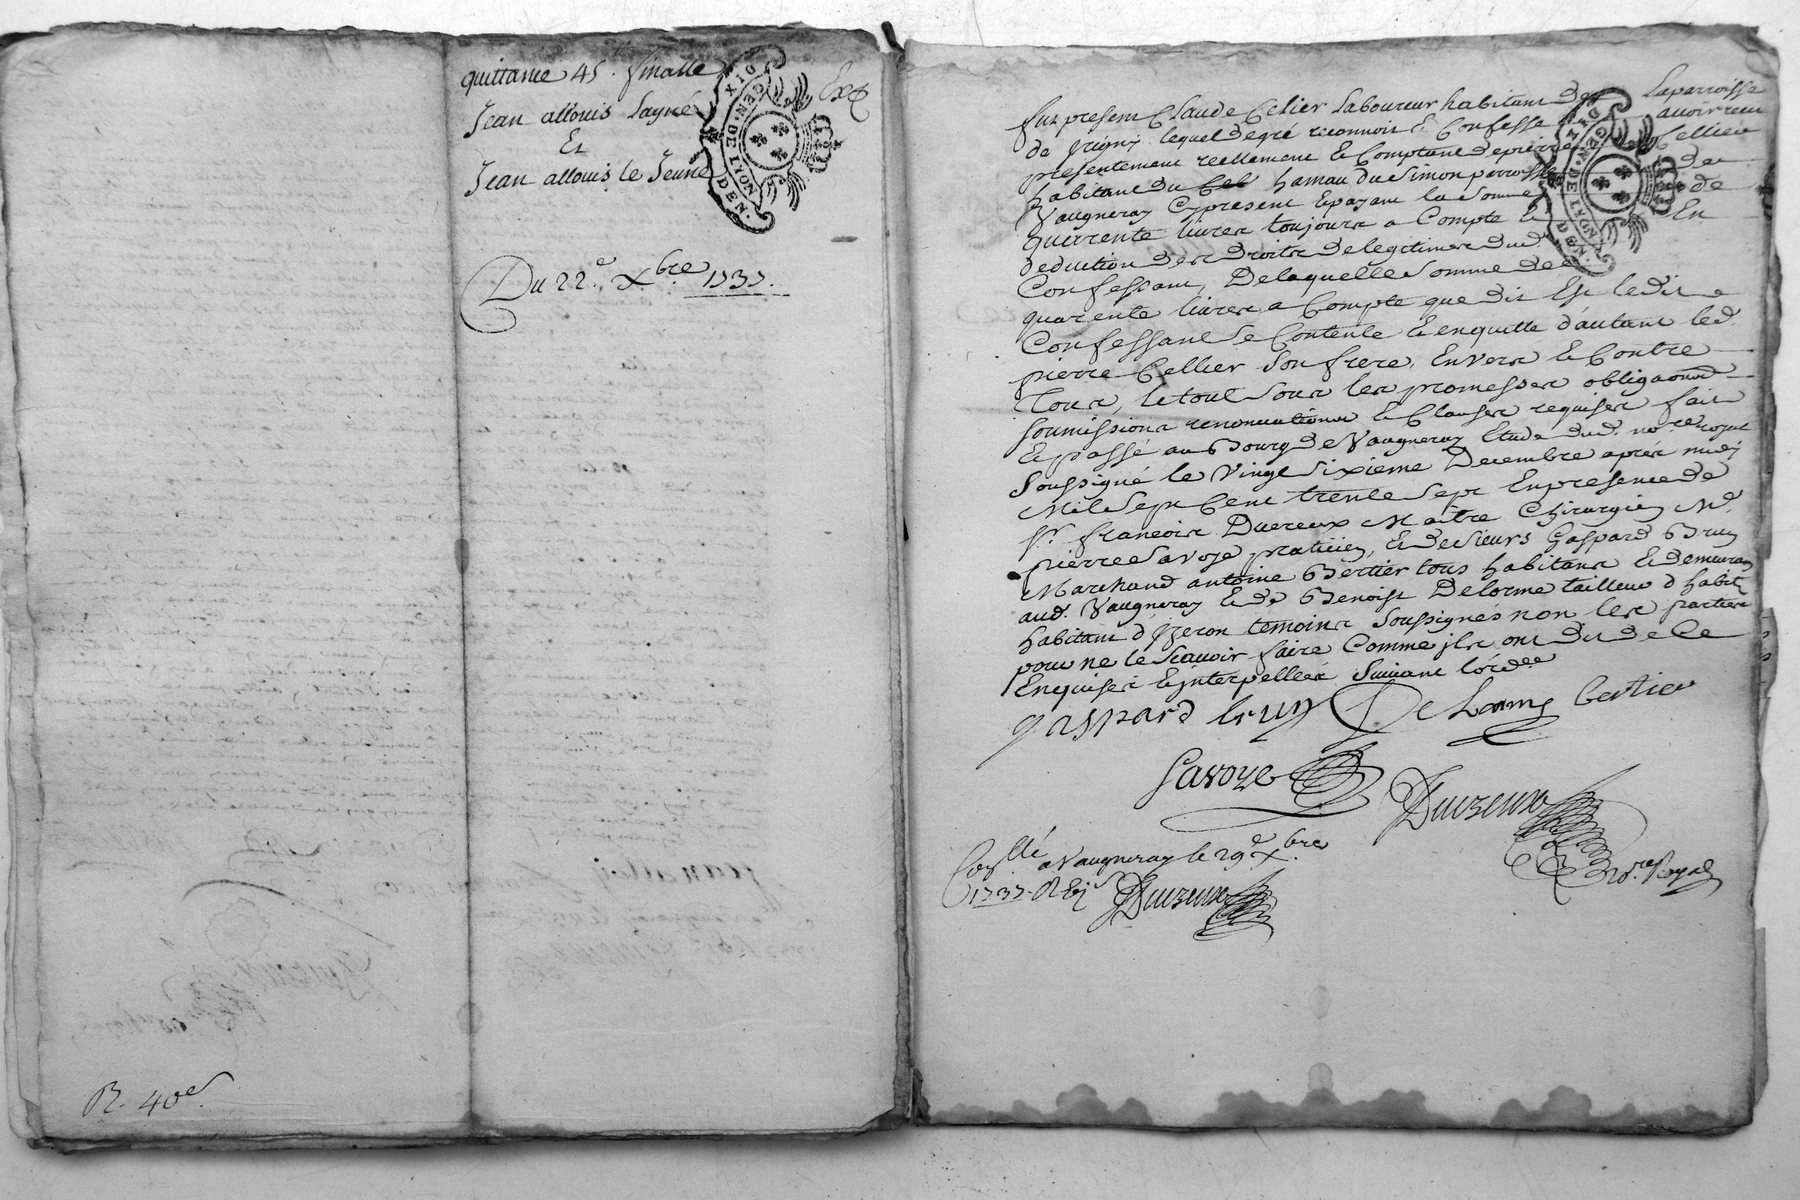 quittance 45. finalle
Jean allouis Layné
Et
Jean allouis le Jeune
Exé
GEN. DE LYON DEN. DIX
Du 22.e Xbre 1737.
R. 40e
fut present Claude Celier Laboureur habitant de la parroisse
de lequel degré reconnoit & Confesse avoir receu
presentement reellement & Comptant de pierre Cellier
habitant du hamau du Simon perrot de
Vaugneray Cy present & payant la Somme de
quarrente livres toujours a Compte & En
deduction des droits de legitimes dud.
Confessant, De laquelle Somme de
quarente livres a Compte que dit Est ledit
Confessant se Contente & en quitte d'autant led.
pierre Cellier Son frere, Envers & Contre
Tous, le tout Sous les promesses obligaons
soumissions renonciations & Clauses requises fait
& passé au Bourg de Vaugneray Etude dud. nore royal
Soussigné le Vingt Sixieme Decembre aprés midy
Mil Sept Cent trente Sept En presence de
Sr. francois Duereux Maitre Chirurgien Me.
pierre Savoye praticien, & de Sieurs Gaspard Brun
Marchand antoine Bertier tous habitans & demeurans
aud. Vaugneray & de Benoist Delorme tailleur d'habit
habitant d'Yzeron temoins Soussignés non les parties
pour ne le Scauoir faire Comme ils ont dit de Ce
Enquises & interpellées Suivant lordce
gaspard brun Delorme bertier
Savoye
Duereux
nore. Royal
Conllé a Vaugneray le 29e Xbre
1737. R
Duereux
GEN. DE LYON DEN. DIX